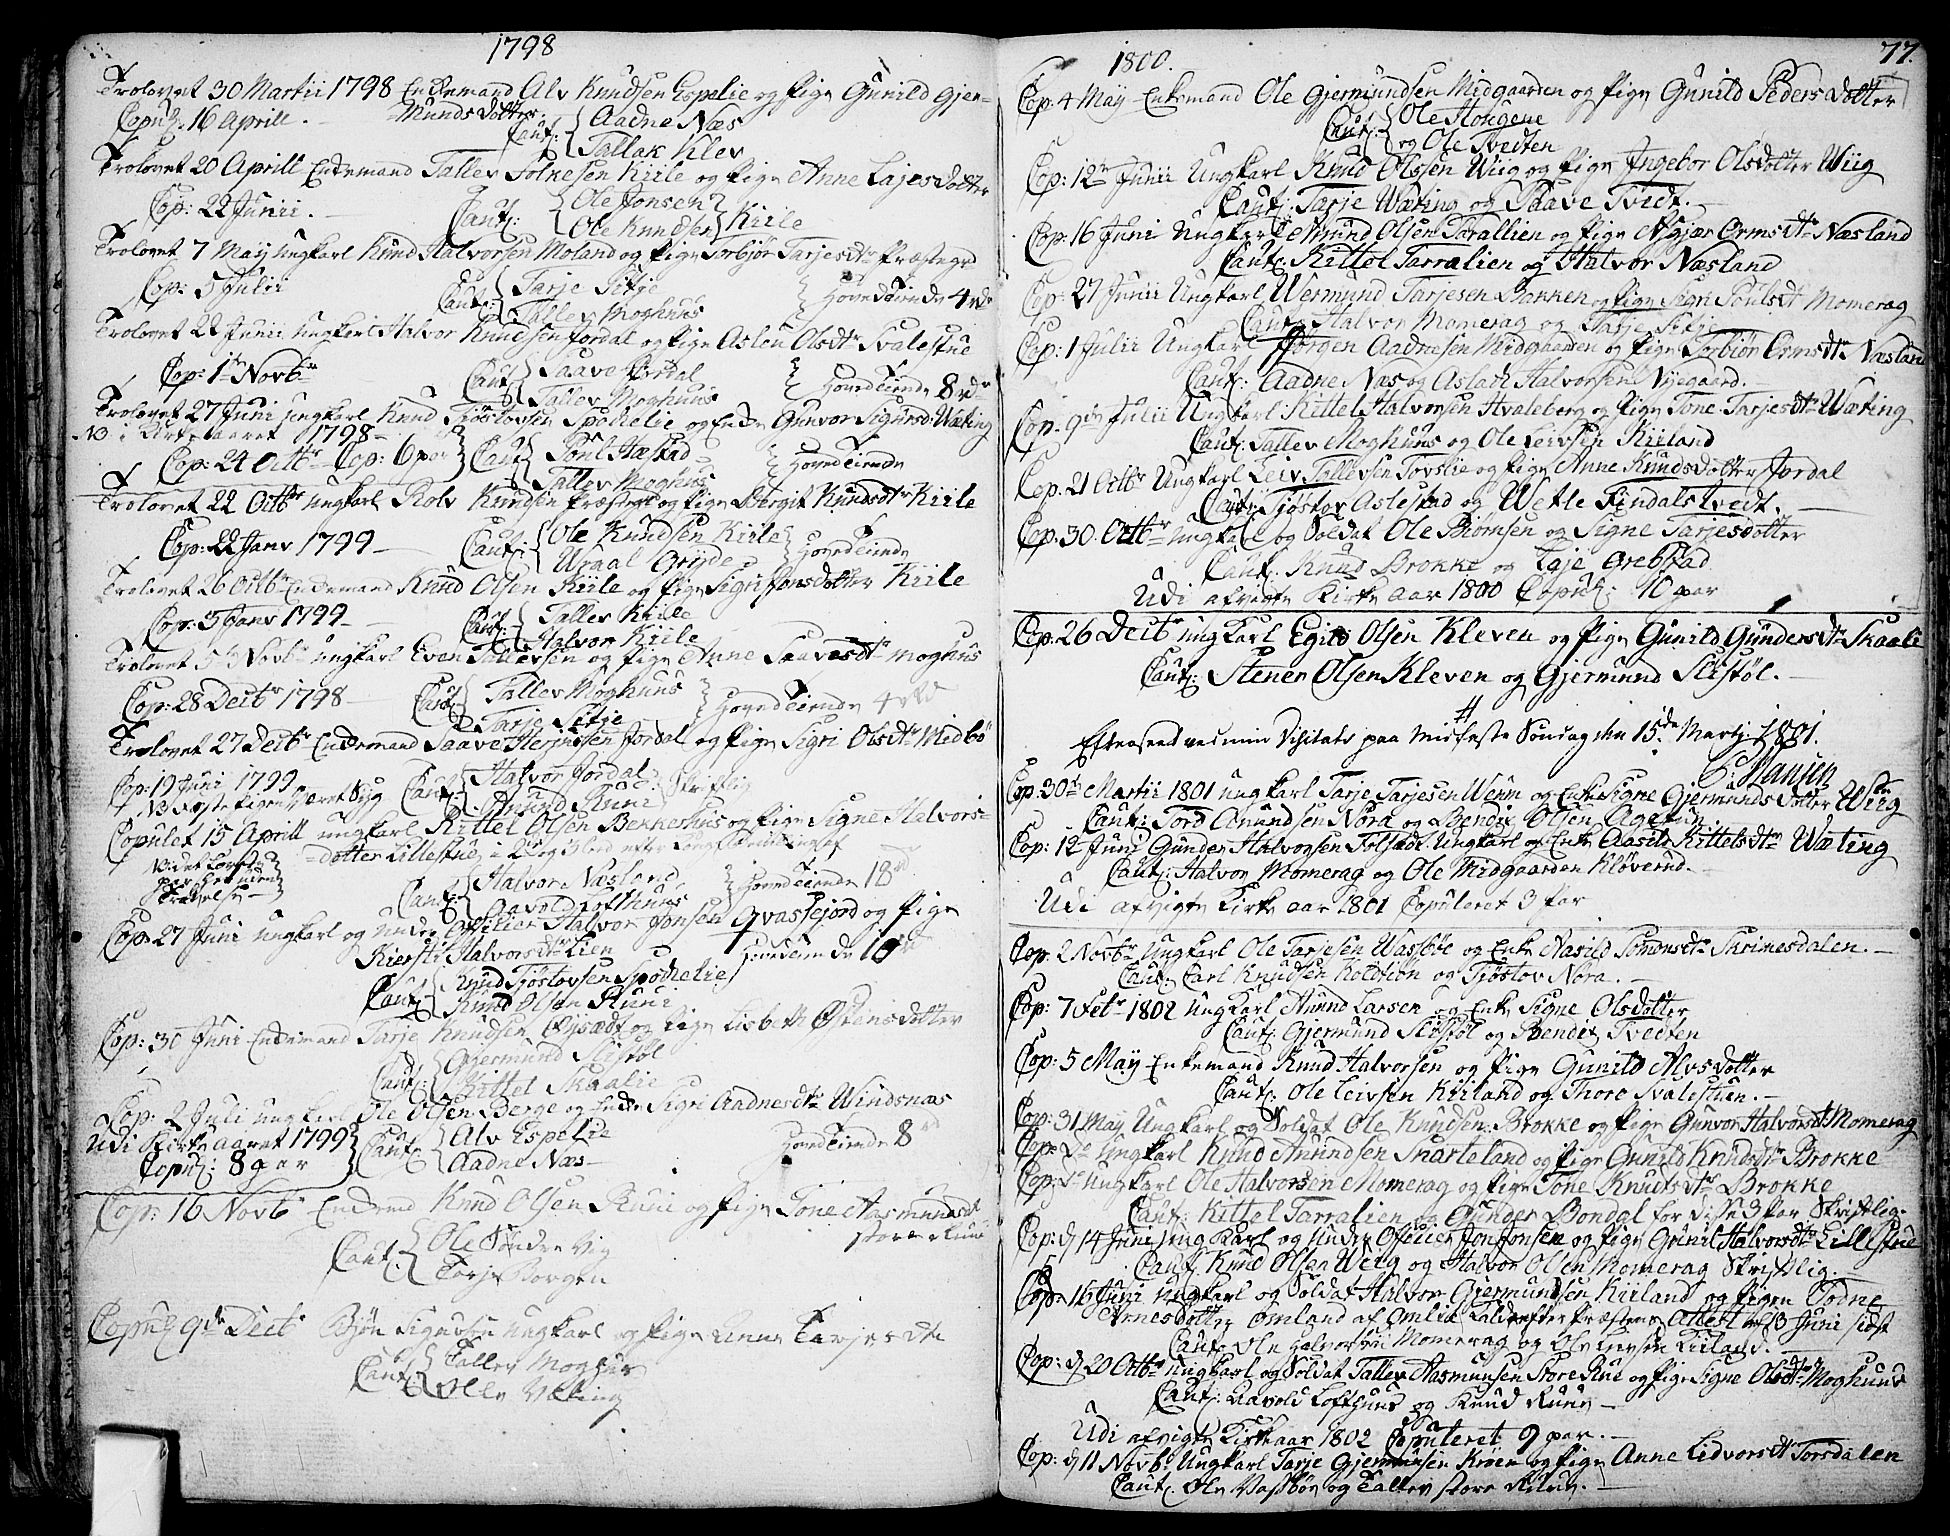 1798
Trolovet 30 Martii 1798 Enkemand Alv Knudsen Espelie og Pige Gunild Gjer-
Copul: 16 Aprill. - Munds Dotter Caut: Aadne Næs
Tallak Klev
Trolovet 20 Aprill Enkemand Tallev Tolnesen Kiile og Pige Anne Lajes Dotter
Cop: 22 Junii. - Caut: Ole Jonsen
Ole Knudsen Kiile
Trolovet 7 May Ungkarl Knud Halvorsen Moland og Pige Torbjør Tarjesdtr Præstegr
Cop: 5 Julii Caut: Tarje Sitje Hoved Tiende 4 rd
Tallev Moghuus
Trolovet 22 Junii Ungkarl Halvor Knudsen Jordal og Pige Aslou Olsdtr Svalestue
Cop: 1 Novbr Caut: Saave Jordal Hoved Tiende 8 rd
Tallev Moghuus
Trolovet 27 Juni ungkarl Knud Tjöstovsen Spokelie og Enke Gunvor Sigursd: Wæting
NB i Kirke aaret 1798 -
Cop: 24 Octbr Cop: 6 par Caut: Poul Hæstad Hoved Tiende
Tallev Moghus
Trolovet 22 Octbr ungkarl Rolv Knudsen Præstegr og Pige Bergit Knudsdtr Kiile
Cop: 22 Janv 1799 - Caut: Ole Knudsen Kiile Hoved Tiende
Uraal Gryde
Trolovet 26 Octbr Enkemand Knud Olsen Kiile og Pige Sigri Jonsdotter Kiile
Cop: 5 Janv 1799 - Caut: Tallev Kiile
Halvor Kiile
Trolovet 3 Novbr ungkarl Even Tallevsen og Pige Anne Saavesdtr Moghus
Cop: 28 Decbr 1798 - Caut: Tallev Moghuus Hoved Tiende 4 rd
Tarje Sitje
Trolovet 27 Decbr Enkemand Saave Herjusen Jordal og Pige Sigri Olsdtr Midbö
Cop: 19 Juni 1799 Caut: Halvor Jordal Skriftlig
NB Pigen været Syg Anund Runi
Copulet 15 Aprill ungkarl Kittel Olsen Bekkeshus og Pige Signe Halvors-
dotter Lillestue i 2 og 3 Led efter
Caut: Halvor Næsland Hoved Tiende 18 rd
Aavold Lofthuus
Cop: 27 Juni ungkarl og under Officier Halvor Jonsen Qvassejord og Pige
Kiersti Halvorsdtr Lien Hoved Tiende 10 rd
Caut: Knud Tjöstovsen Spokelie
Knud Olsen Runi
Cop: 30 Juni Enkemand Tarje Knudsen og Pige Lisbeth Östensdotter
Caut: Gjermund Slistøl
Kittel Skaalie
Cop: 2 Juli ungkarl Ole Olsen Berge og Enke Sigri Aadnesdtr Windsnæs
Udi Kirke aaret 1799 Caut: Alv Espelie Hoved Tiende 8 rd
Copul: 8 par Aadne Næs -
Cop: 16 Novb Enkemd Knud Olsen Runi og Pige Tone Aasmundsdt
store Runi
Caut: Ole Söndre Vig
Tarje Borgen
Copul: 9de Decb Bjön Sigursen ungkarl og Pige Anne Tarjesdtr
Caut: Tallev Moghus
Olle Væting
1800. 77.
Cop: 4 May Enkemand Ole Gjermundsen Midgaarden og Pige Gunild Peders Dotter
Caut: Ole Hougene
og Ole Tvedten
Cop: 12te Junii Ungkarl Knud Olssen Wiig og Pige Ingebor Olsdotter Wiig
Caut: Tarje Wæting og Saave Tvedt. -
Cop: 16 Juni Ungkarl Amund Olsen Torallien og Pige Asgjær Ormsdtr Næsland
Caut: Kittel Tarralien og Halvor Næsland
Cop: 27 Junii Ungkarl Wermund Tarjesen Bakken og Pige Sigri Poulsdt Momerag
Caut: Halvor Momerag og Tarje Sitje
Cop: 1 Julii Ungkarl Jörgen Aadnesen Midgaarden og Pige Torbiør Ormsdtr Næsland
Caut: Aadne Næs og Aslach Halvorsen Nyegaard. -
Cop: 9de Julii Ungkarl Kittel Halvorsen Hvaleberg og Pige Tone Tarjesdtr Wæting
Caut: Tallev Moghuus og Ole Leivsen Kiiland
Cop: 21 Octbr Ungkarl Leiv Tallevsen Tovslie og Pige Anne Knudsdotter Jordal
Caut: Tjöstov Aslestad og Wetle Findalstvedt. -
Cop: 30 Octbr Ungkarl og Soldat Ole Biørnsen og Signe Tarjesdotter
Caut: Knud Brokke og Taje Orebstad
Udi afvigte Kirke aar 1800 Copul: 10 par
Cop: 26 Decbr ungkarl Egild Olsen Kleven og Pige Gunild Gundersdtr Skaali
Caut: Stener Olsen Kleven og Gjermund Slistøl. -
Efterseet ved min Visitats paa Midfaste Søndag den 15de Martj 1801.
Hansen
Cop: 30te Martii 1801 ungkarl Tarje Tarjesen Wenm og Enke Signe Gjermunds Dotter Wiig
Caut: Tord Anundsen Nora og Bendix Olsen Agetun
Cop: 12 Juni Gunder Halvorsen Folsædt Ungkarl og Enke Aasild Kittelsdtr Wæting
Caut: Halvor Momerag og Ole Midgaarden Kløverud. -
Udi afvigte Kirke aar 1801 Copuleret 3 Par
Cop: 2 Novbr Ungkarl Ole Tarjesen Wasbøe og Enke Aasild Simonsdtr Skrimesdalen. -
Caut: Carl Knudsen Koldtion og Tjöstov Nora. -
Cop: 7 Febr 1802 ungkarl Anund Larsen og Enke Signe Olsdotter
Caut: Gjermund Slistøl og Bendix Tvedten
Cop: 5 May Enkemand Knud Halvorsen og Pige Gunild Alvsdotter
Caut: Ole Leivsen Kiiland og Thore Svalestuen. -
Cop: 31 May Ungkarl og Soldat Ole Knudsen Brokke og Pige Gunvor Halvorsdt Momerag
Cop: Do Ungkarl Knud Anundsen Snarteland og Pige Gunild Knudsdtr Brokke
Cop: Do Ungkarl Ole Halvorsen Momerag og Pige Tone Knudsdtr Brokke
Caut: Kittel Tarralien og Gunder Bondal for disse 3 Par Skriftlig.
Cop: d 14 Juni Ung Karl og Under Officier Jon Jonsen og Pige Gunil Halvorsdtr Lillestue
Caut: Knud Olsen Weig og Halvor Olsen Momerag Skriftlig. -
Cop: 16 Juni Ungkarl og Soldat Halvor Gjermundsen Kiiland og Pigen Todne
Arnesdotter Omland af Omlid efter Præstens Attest af 13 Juni sidst
Caut: Ole Halvorsen Momerag og Ole Leivsen Kiiland. -
Cop: d 20 Octbr Ungkarl og Soldat Tallev Aasmunsen Store Rui og Pige Signe Olsdtr Moghuus
Caut: Aavold Lofthuus og Knud Runi -
Udi afvigte Kirke aar 1802 Copuleret 9 par. -
Cop: d 11 Novbr Ungkarl Tarje Gjermunsen Krøen og Pige Anne Lidvorsdt Torsdalen
Caut: Ole Vasbøe og Tallev store Runi. -